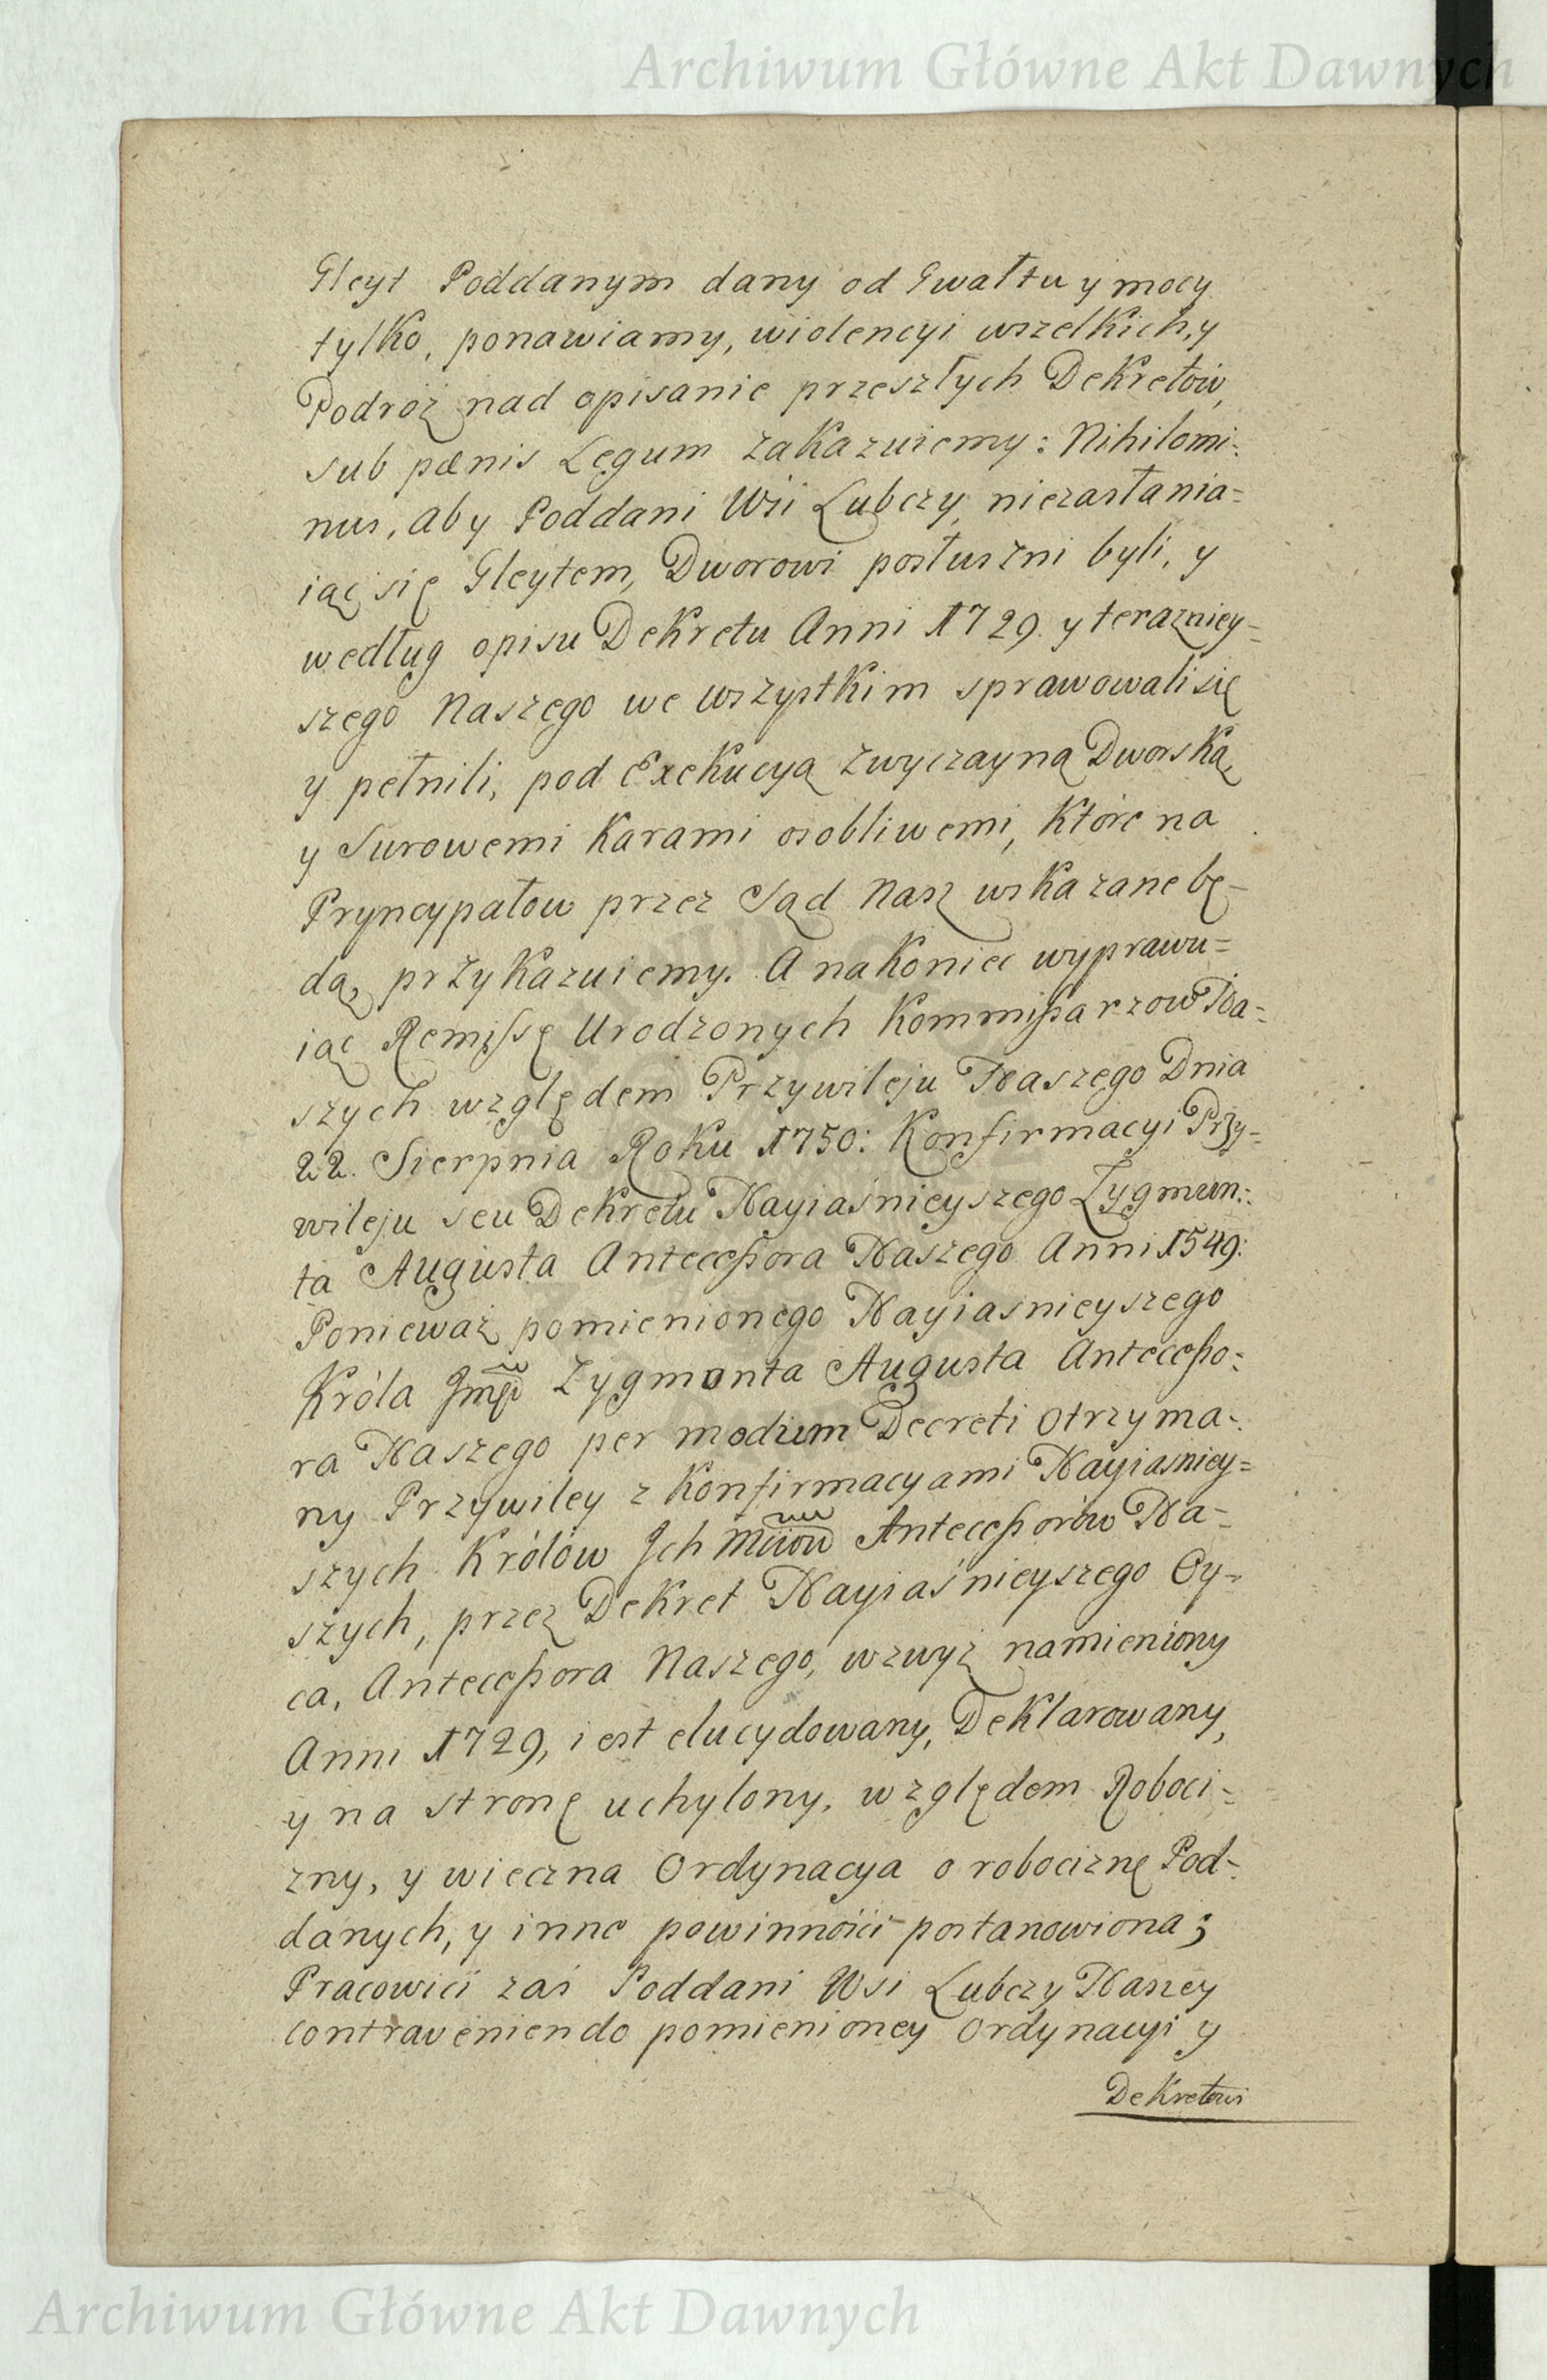 Archiwum Główne Akt Dawnych
Gleyt Poddanym dany od Gwałtu y mocy
tylko, ponawiamy, wiolencyi wszelkich, y
Podróż nad opisanie przeszłych Dekretów,
sub pœnis Legum zakazuiemy: Nihilomi=
nus, aby Poddani Wsi Lubczy, niezasłania=
iąc się Gleytem, Dworowi posłuszni byli, y
według opisu Dekretu Anni 1729. y terazniey=
szego Naszego we wszystkim sprawowali się
y pełnili, pod Exekucyą zwyczayną Dworską,
y Surowemi Karami osobliwemi, które na
Pryncypałow przez Sąd Nasz wskazane bę=
dą, przykazuiemy. A nakoniec wyprawu=
iąc Remissę Urodzonych Kommissarzow Na=
szych względem Przywileju Naszego Dnia
22. Sierpnia Roku 1750: Konfirmacyi Przy=
wileju seu Dekretu Nayiaśnieyszego Zygmun=
ta Augusta Antecessora Naszego Anni 1549:
Ponieważ pomienionego Nayiasnieyszego
Króla Zygmonta Augusta Antecesso=
ra Naszego per modum Decreti otrzyma=
ny Przywiley z Konfirmacyami Nayiasniey=
szych Królów Ich Mciów Antecessorów Na=
szych, przez Dekret Nayiaśnieyszego Oy=
ca, Antecessora Naszego, wzwyż namieniony
Anni 1729, iest elucydowany, Deklarowany,
y na stronę uchylony, względem Roboci=
zny, y wieczna Ordynacya o robociznę Pod=
danych, y inne powinności postanowiona;
Pracowici zaś Poddani Wsi Lubczy Naszey
contraveniendo pomienioney Ordynacyi y
Dekretowi
Archiwum Główne Akt Dawnych